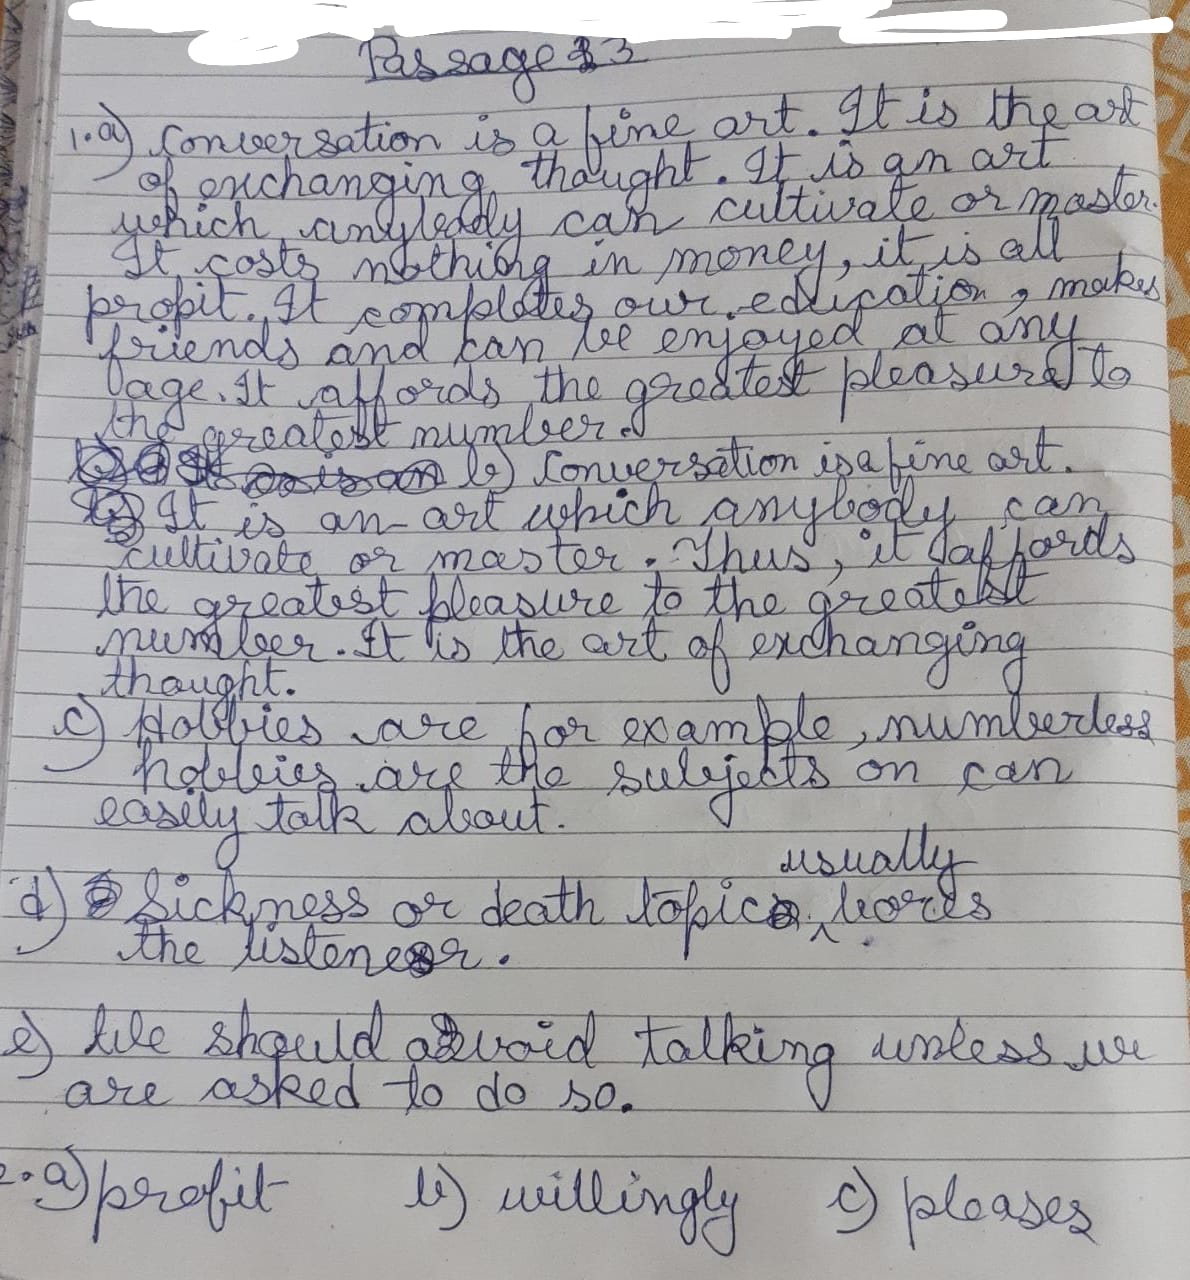 Passage 3
1.a) Conversation is a fine art. It is the art
of exchanging thought. It is an art
which anybody can cultivate or master.
It costs nothing in money, it is all
profit. It completes our education, makes
friends and can be enjoyed at any
age. It affords the greatest pleasure to
the greatest number.
b) Conversation is a fine art.
It is an art which anybody can
cultivate or master. Thus, it affords
the greatest pleasure to the greatest
number. It is the art of exchanging
thought.
c) Hobbies are for example, numberless
hobbies are the subjects on can
easily talk about.
d) Sickness or death topics usually bores
the listener.
e) We should avoid talking unless we
are asked to do so.
2.a) profit b) willingly c) pleases